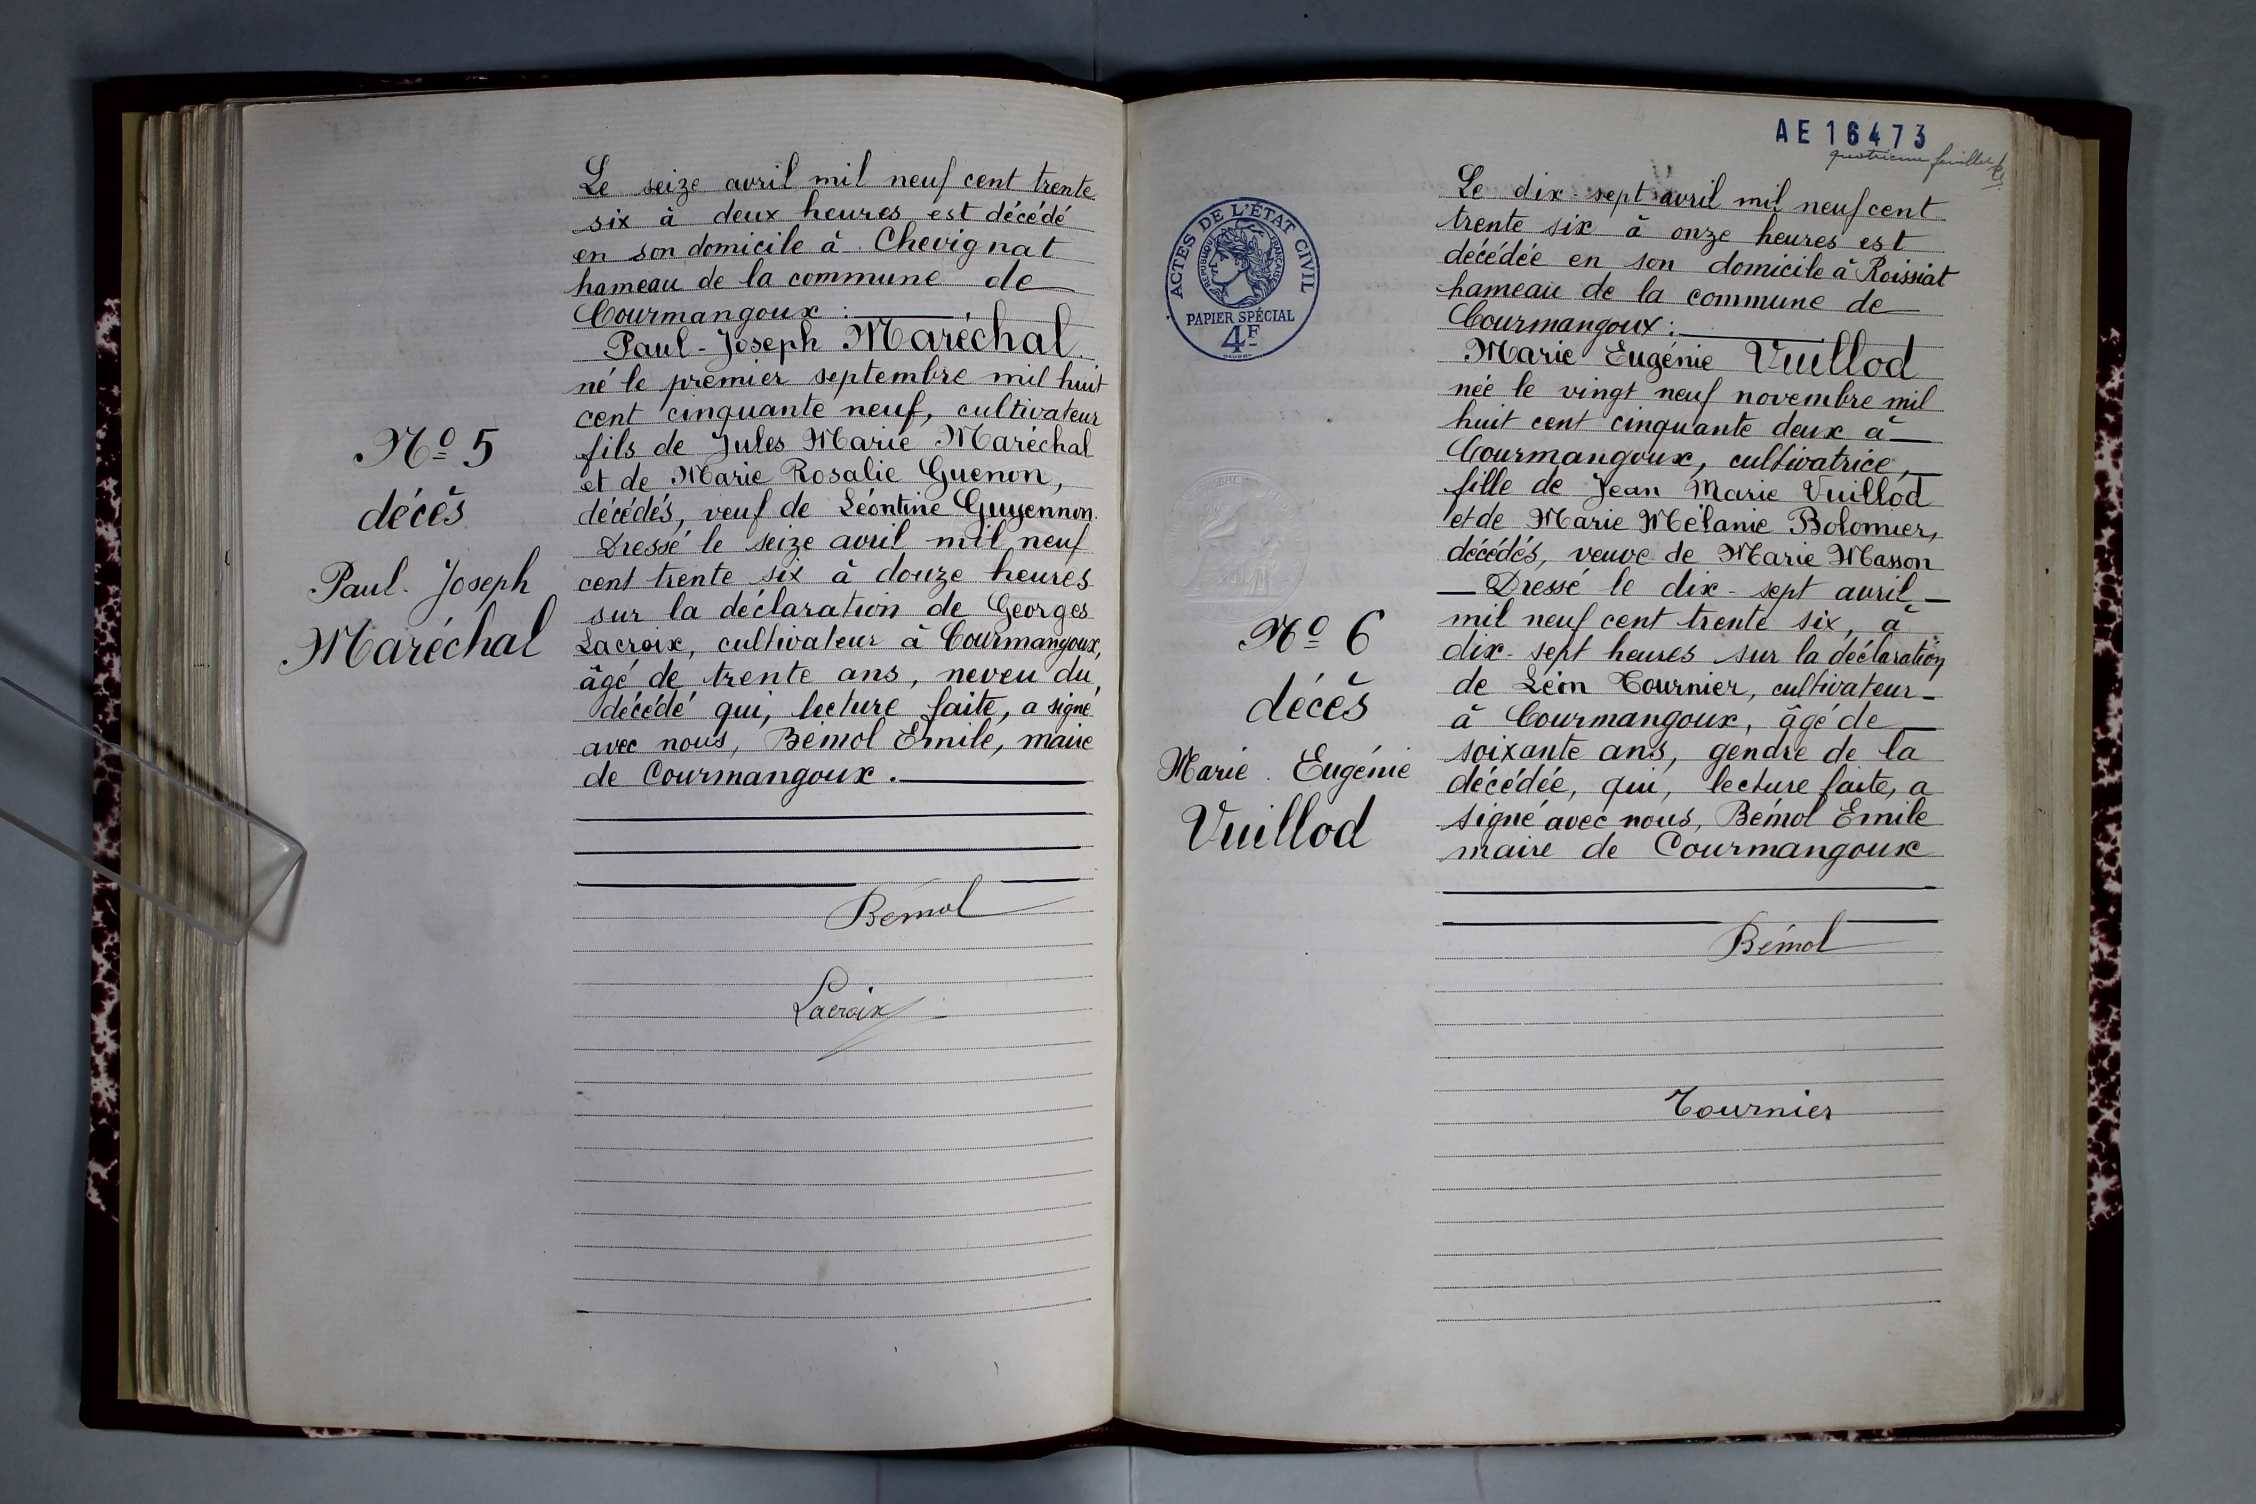 Le seize avril mil neuf cent trente
six à deux heures est décédé
en son domicile à Chevignat
hameau de la commune de
Courmangoux :
Paul-Joseph Maréchal
né le premier septembre mil huit
cent cinquante neuf, cultivateur
fils de Jules Marie Maréchal
et de Marie Rosalie Guenon,
décédés, veuf de Léontine Guyennon.
Dressé le seize avril mil neuf
cent trente six à douze heures
sur la déclaration de Georges
Lacroix, cultivateur à Courmangoux,
âgé de trente ans, neveu du
décédé qui, lecture faite, a signé
avec nous, Bémol Emile, maire
de Courmangoux.
Nº 5
décès
Paul-Joseph
Maréchal
Bémol
Lacroix
AE16473
quatrième feuillet
ACTES DE L'ÉTAT CIVIL
RÉPUBLIQUE FRANÇAISE
PAPIER SPÉCIAL
4F
Le dix-sept avril mil neuf cent
trente six à onze heures est
décédée en son domicile à Roissiat
hameau de la commune de
Courmangoux :
Marie Eugénie Vuillod
née le vingt neuf novembre mil
huit cent cinquante deux à
Courmangoux, cultivatrice,
fille de Jean Marie Vuillod
et de Marie Mélanie Bolomier,
décédés, veuve de Marie Masson
Dressé le dix-sept avril
mil neuf cent trente six, à
dix-sept heures sur la déclaration
de Léon Tournier, cultivateur
à Courmangoux, âgé de
soixante ans, gendre de la
décédée, qui, lecture faite, a
signé avec nous, Bémol Emile
maire de Courmangoux
Nº 6
décès
Marie Eugénie
Vuillod
Bémol
Tournier